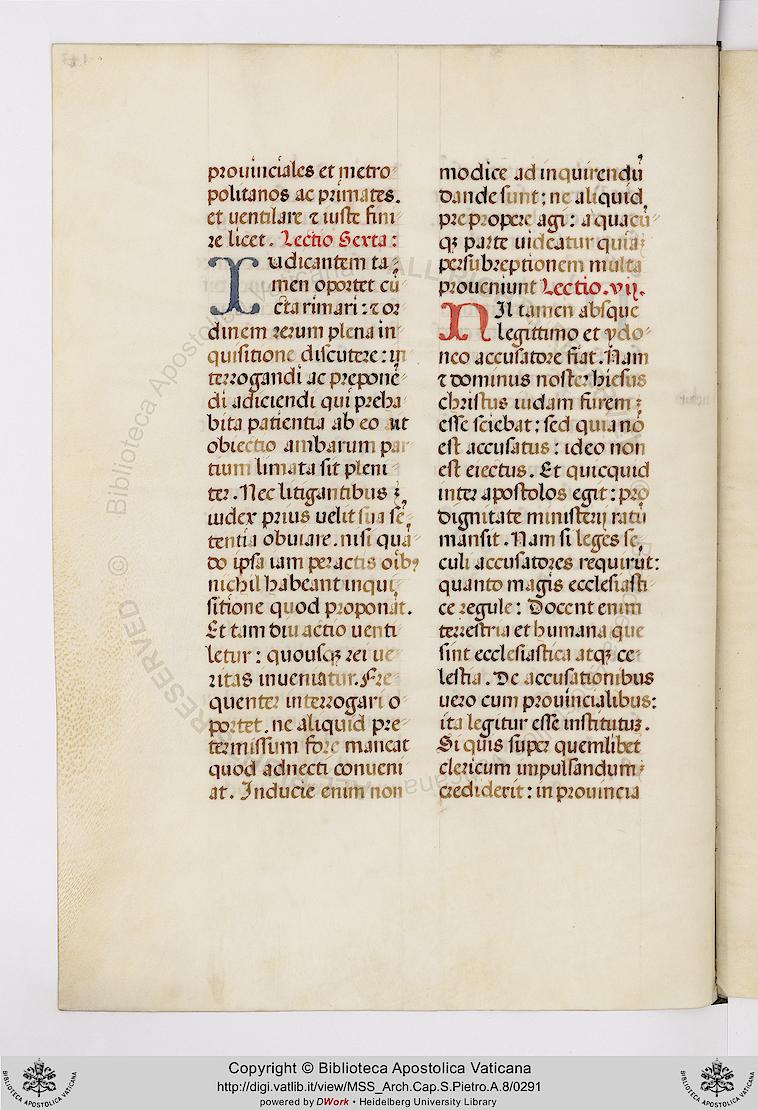 prouinciales et metro
politanos ac primates.
et uentilare ⁊ iuste fini
re licet. Lectio Sexta:
Iudicantem ta
men oportet cū
cta rimari: ⁊ or
dinem rerum plena in
quisitione discutere: in
terrogandi ac preponē
di adiciendi qui preha
bita patientia ab eo ut
obiectio ambarum par
tium limata sit pleni
ter. Nec litigantibus
iudex prius uelit sua sē
tentia obuiare. nisi quā
do ipsa iam peractis oībꝰ
nichil habeant inqui
sitione quod proponāt.
Et tam diu actio uenti
letur: quousqꝫ rei ue
ritas inueniatur. Fre
quenter interrogari o
portet. ne aliquid pre
termissum fore maneat
quod adnecti conueni
at. Inducie enim non
modice ad inquirendū
dande sunt: ne aliquid
prepropere agi: a quacū
qꝫ parte uideatur quia
persubreptionem multa
proueniunt Lectio.vij.
Nil tamen absque
legittimo et ydo
neo accusatore fiat. Nam
⁊ dominus noster hiesus
christus iudam furem
esse sciebat: sed quia nō
est accusatus: ideo non
est eiectus. Et quicquid
inter apostolos egit: pro
dignitate ministerij ratū
mansit. Nam si leges se
culi accusatores requirūt:
quanto magis ecclesiasti
ce regule: Docent enim
terrestria et humana que
sint ecclesiastica atqꝫ ce
lestia. De accusationibus
uero cum prouincialibus:
ita legitur esse institutuꝫ.
Si quis super quemlibet
clericum impulsandum
crediderit: in prouincia
Copyright © Biblioteca Apostolica Vaticana
http://digi.vatlib.it/view/MSS_Arch.Cap.S.Pietro.A.8/0291
powered by DWork • Heidelberg University Library